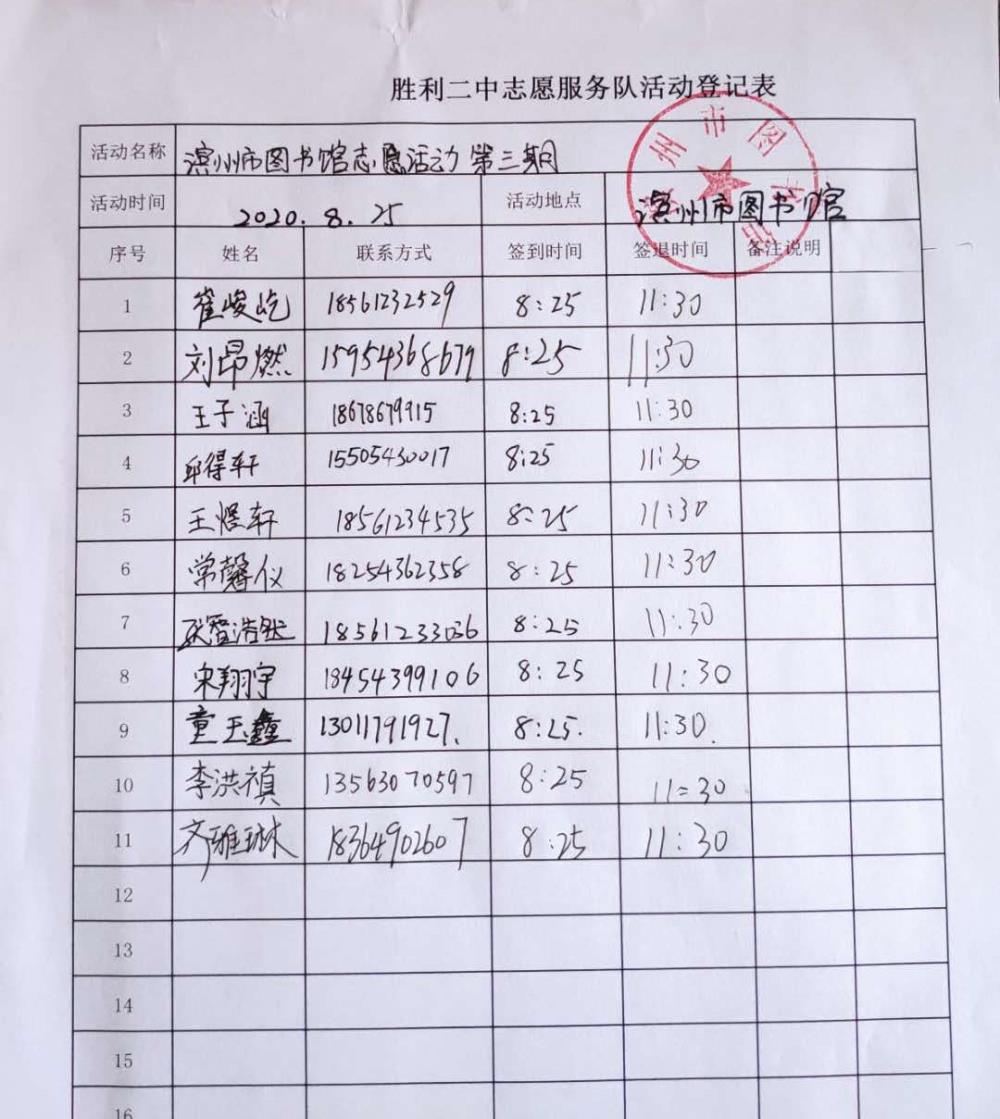 胜利二中志愿服务队活动登记表
活动名称 滨州市图书馆志愿活动 第三期
活动时间 2020.8.25 活动地点 滨州市图书馆
滨州市图书馆
序号 姓名 联系方式 签到时间 签退时间 备注说明
1 崔峻屹 18561232529 8:25 11:30
2 刘昂燃 15954368679 8:25 11:30
3 王子涵 18678679915 8:25 11:30
4 邱得轩 15505430017 8:25 11:30
5 王煜轩 18561234535 8:25 11:30
6 常馨仪 18254362358 8:25 11:30
7 8:25 11:30
8 宋翔宇 18454399106 8:25 11:30
9 童玉鑫 13011791927. 8:25. 11:30.
10 李洪禛 13563070597 8:25 11:30
11 齐雅琳 18364902607 8:25 11:30
12
13
14
15
16